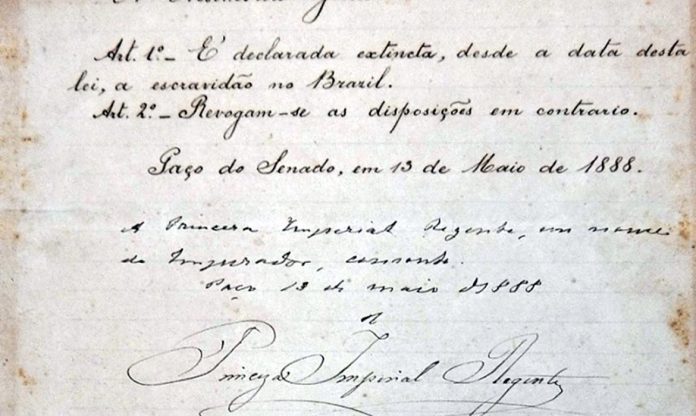 Art. 1º.- E' declarada extincta, desde a data desta
lei, a escravidão no Brazil.
Art. 2º.- Revogam-se as disposições em contrario.
Paço do Senado, em 13 de Maio de 1888.
A Princeza Imperial Regente, em nome
do Imperador, consente.
Paço 13 de maio de 1888
Princeza Imperial Regente